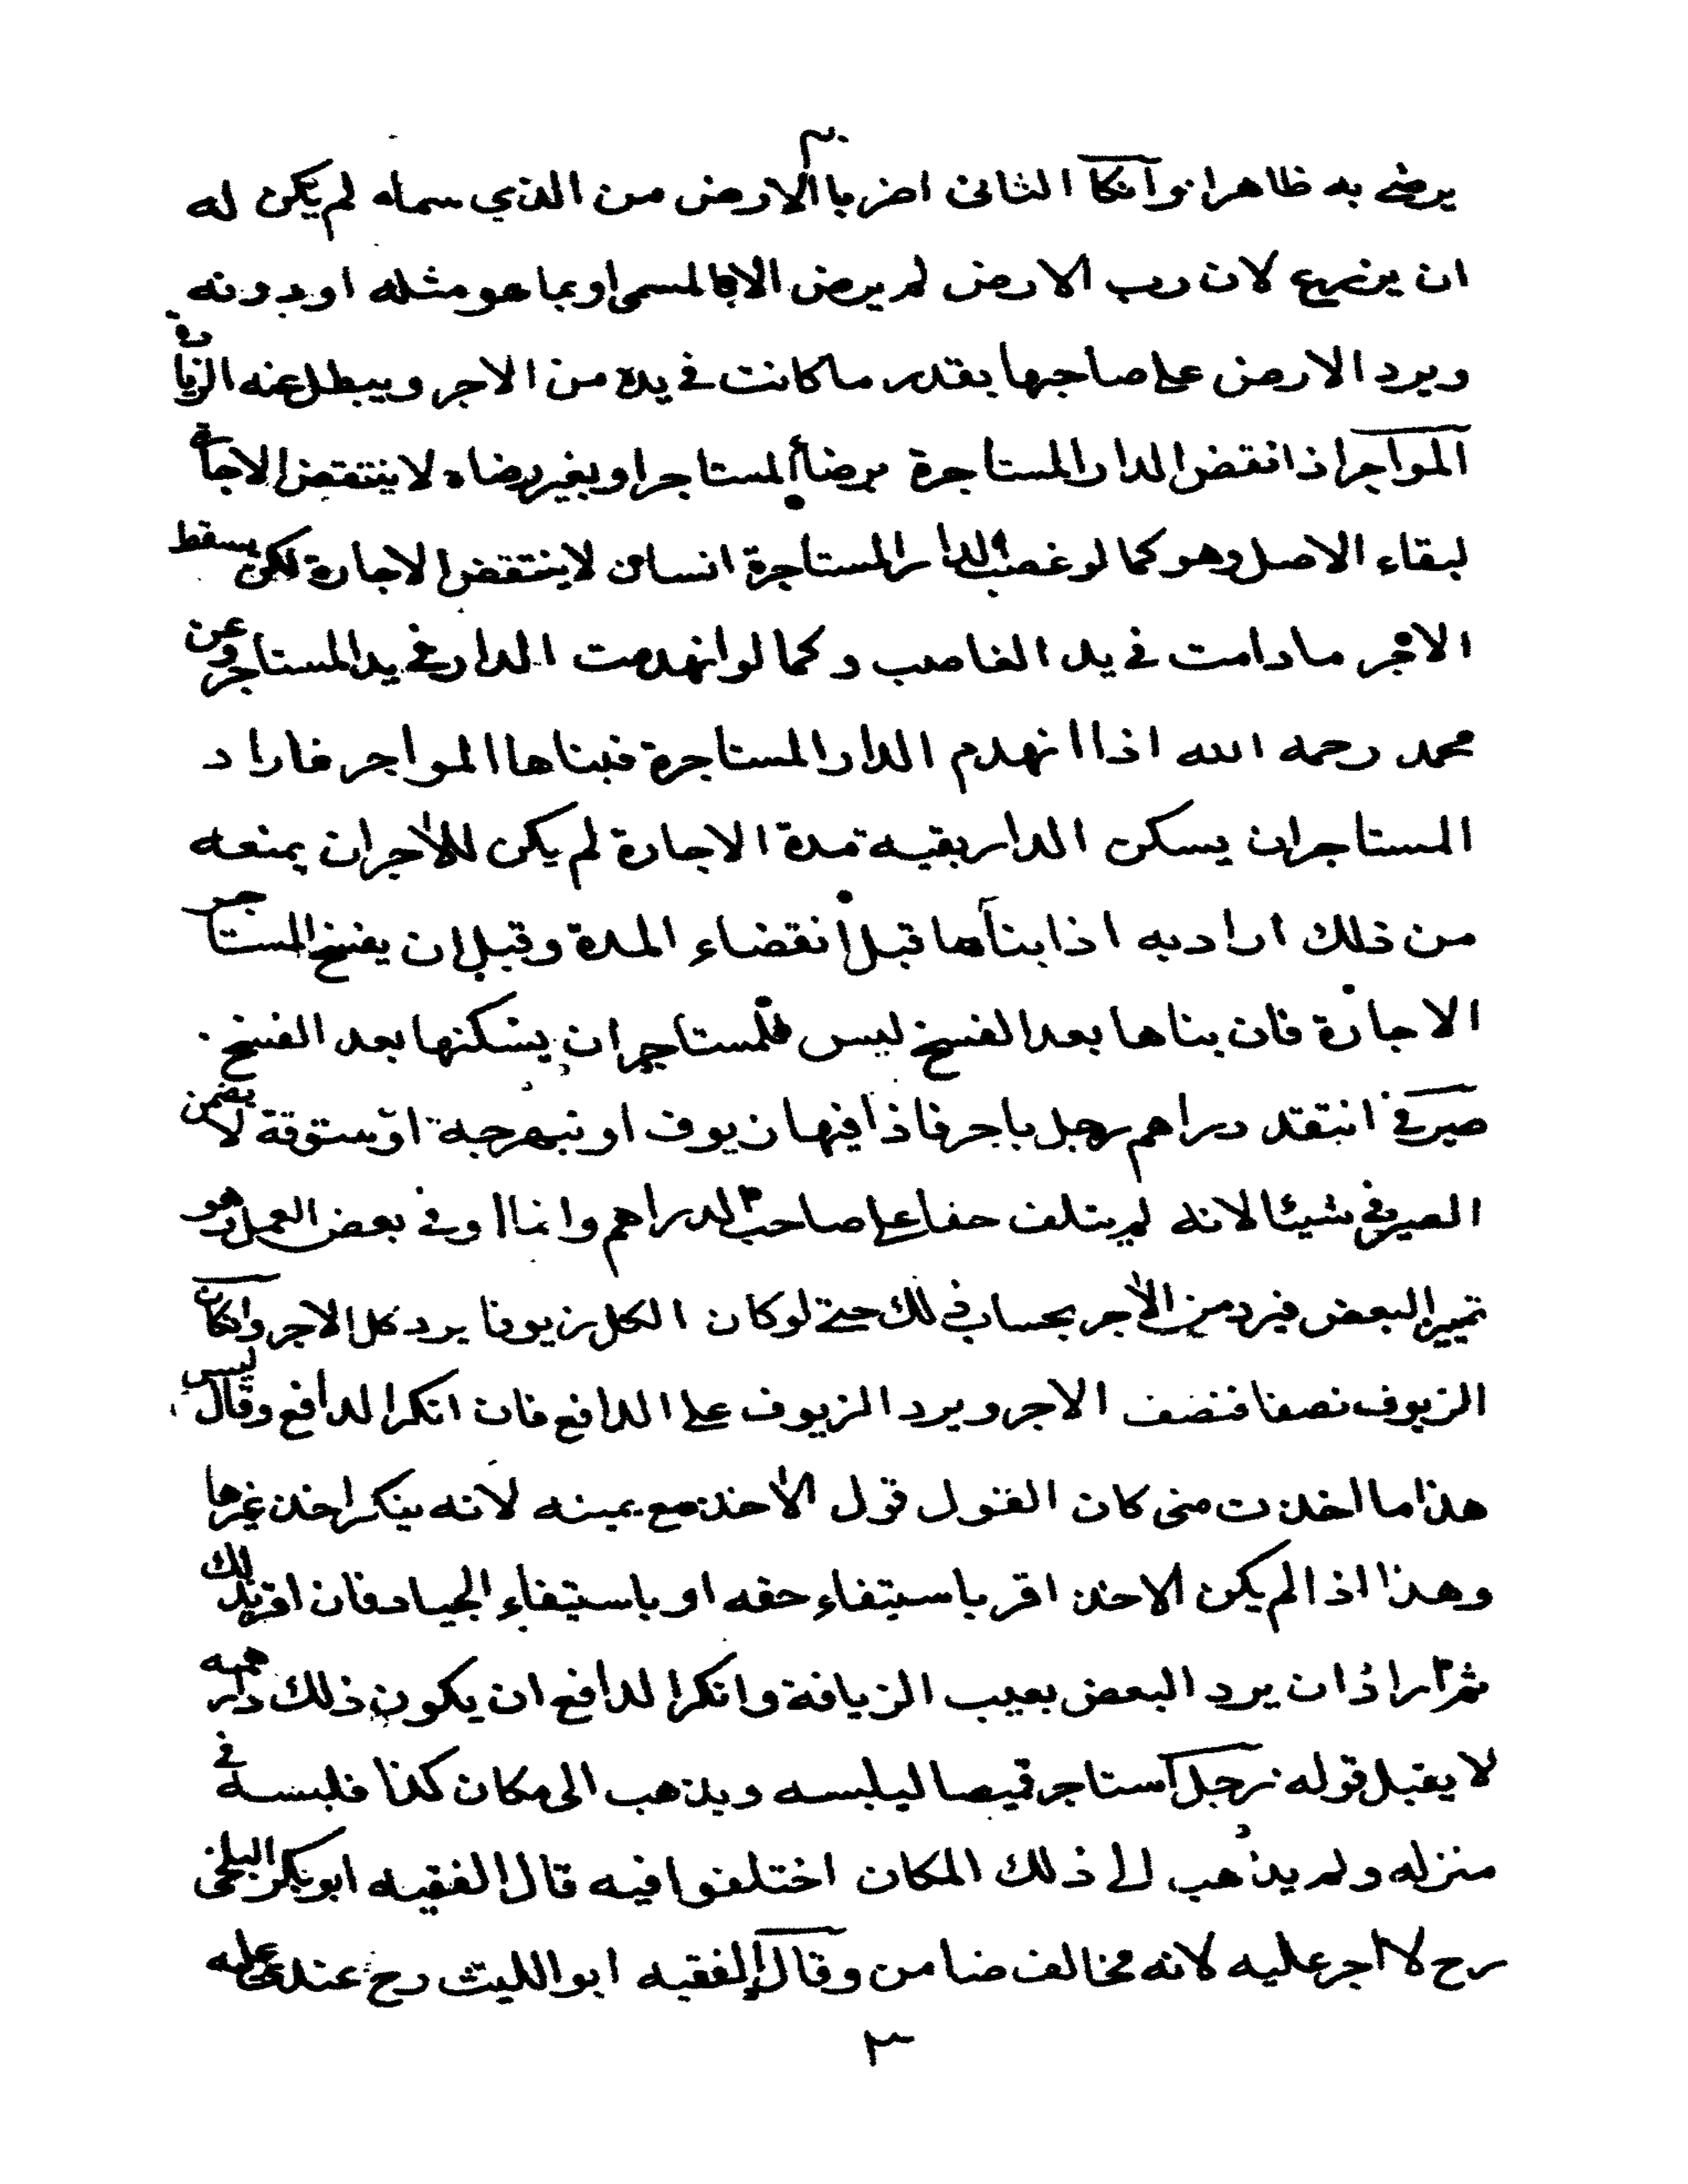 يرضى به ظاهرا وانكا الثانى اضر بالارض من الذي سماه لم يكن له
ان يزرع لان رب الارض لم يرض الا بالمسمى او بما هو مثله او بدونه
ويرد الارض على صاحبها بقدر ما كانت في يده من الاجر ويبطل عنه الزيادة
المواجر اذا نقض الدار المستاجرة برضا المستاجر او بغير رضاه لا ينتقض الاجارة
لبقاء الاصل وهو كما لو غصب الدار المستاجرة انسان لا ينتقض الاجارة لكن يسقط
الاجر ما دامت في يد الغاصب وكما لو انهدمت الدار في يد المستاجر وعن
محمد رحمه الله اذا انهدم الدار المستاجرة فبناها المواجر فاراد
المستاجر ان يسكن الدار بقيه مدة الاجارة لم يكن للاجر ان يمنعه
من ذلك اراد به اذا بناها قبل انقضاء المدة وقبل ان يفسخ المستاجر
الاجارة فان بناها بعد الفسخ ليس فلمستاجر ان يسكنها بعد الفسخ
صيرفي انتقد دراهم رجل باجر فاذا فيها زيوف او نبهرجة او ستوقة لا يضمن
الصيرفي شيئا لانه لم يتلف حقا على صاحب الدراهم وانما اوفى بعض العمل وهو
تمييز البعض فيرد من الاجر بحساب ذلك حتى لو كان الكل زيوفا يرد كل الاجر وانكان
الزيوف نصفا فنصف الاجر ويرد الزيوف على الدافع فان انكر الدافع وقال ليس
هذا ما اخذت منى كان القول قول الاخذ مع يمينه لانه ينكر اخذ غيرها
وهذا اذا لم يكن الاخذ اقر باستيفاء حقه او باستيفاء الجياد فان اقر بذلك
ثم اراد ان يرد البعض بعيب الزيافة وانكر الدافع ان يكون ذلك دراهمه
لا يقبل قوله رجل استاجر قميصا ليلبسه ويذهب الى مكان كذا فلبسه في
منزله ولم يذهب الى ذلك المكان اختلفوا فيه قال الفقيه ابو بكر البلخى
رح لا اجر عليه لانه مخالف ضامن وقال الفقيه ابو الليث رح عندى عليه
٣